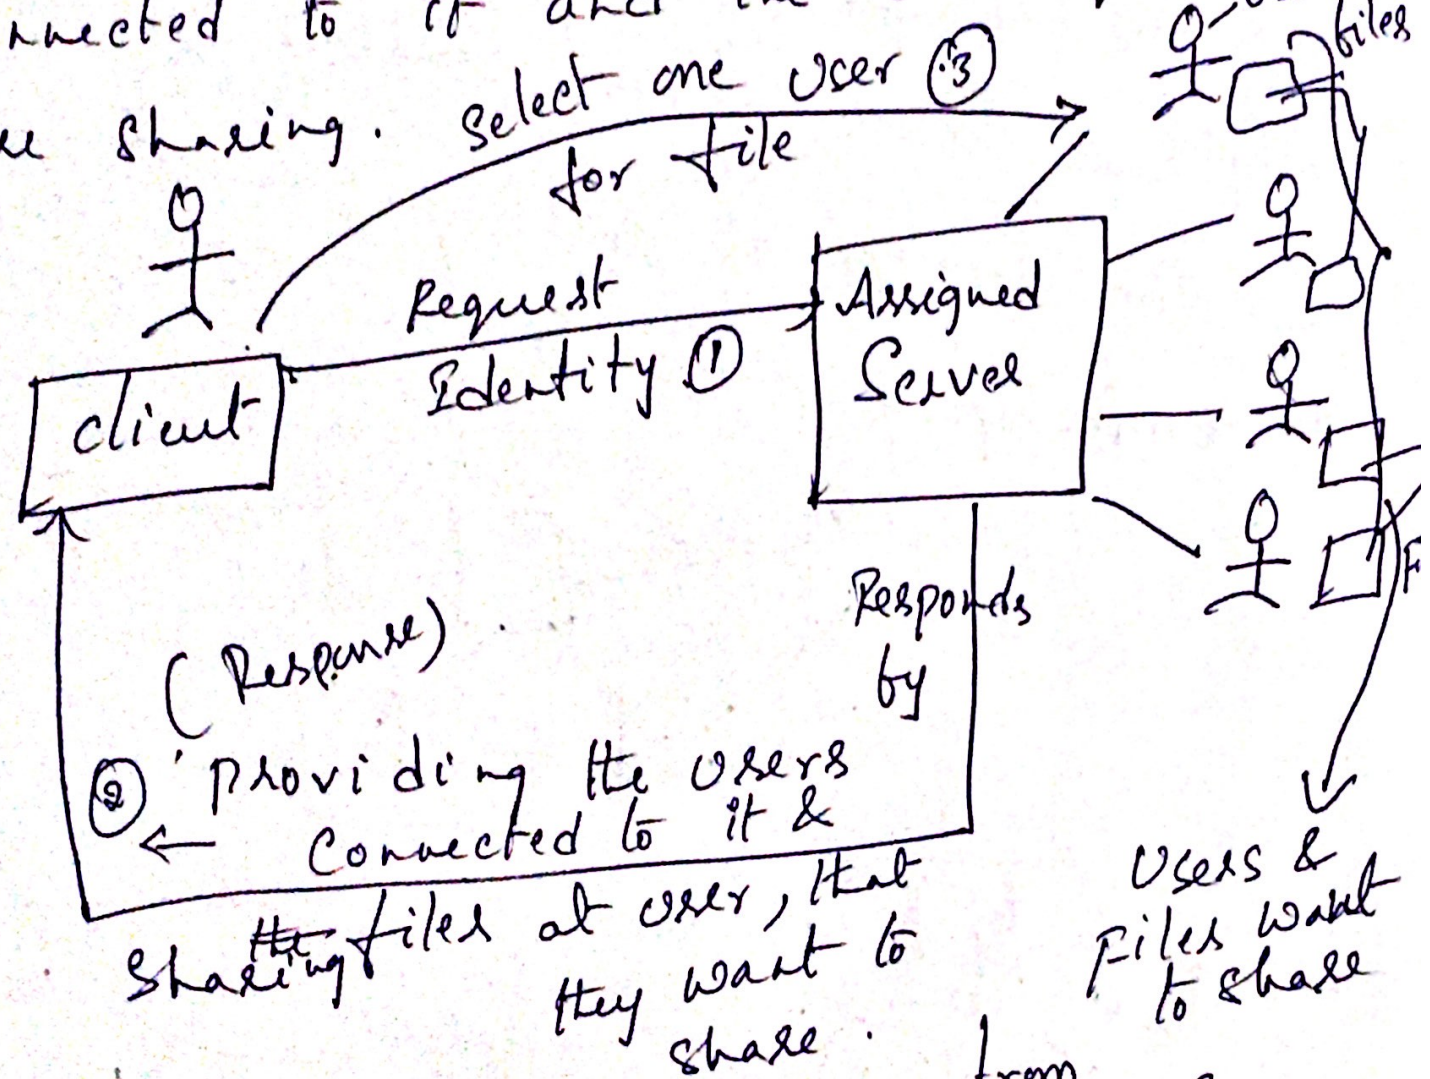 nnected to it and
Sharing.
Select one User ③
for file
files
Request
Identity ①
Assigned
Server
client
Responds
by
(Response)
② Providing the users
← Connected to it &
Sharing files at user, that
they want to
share.
Users &
Files want
to share
from